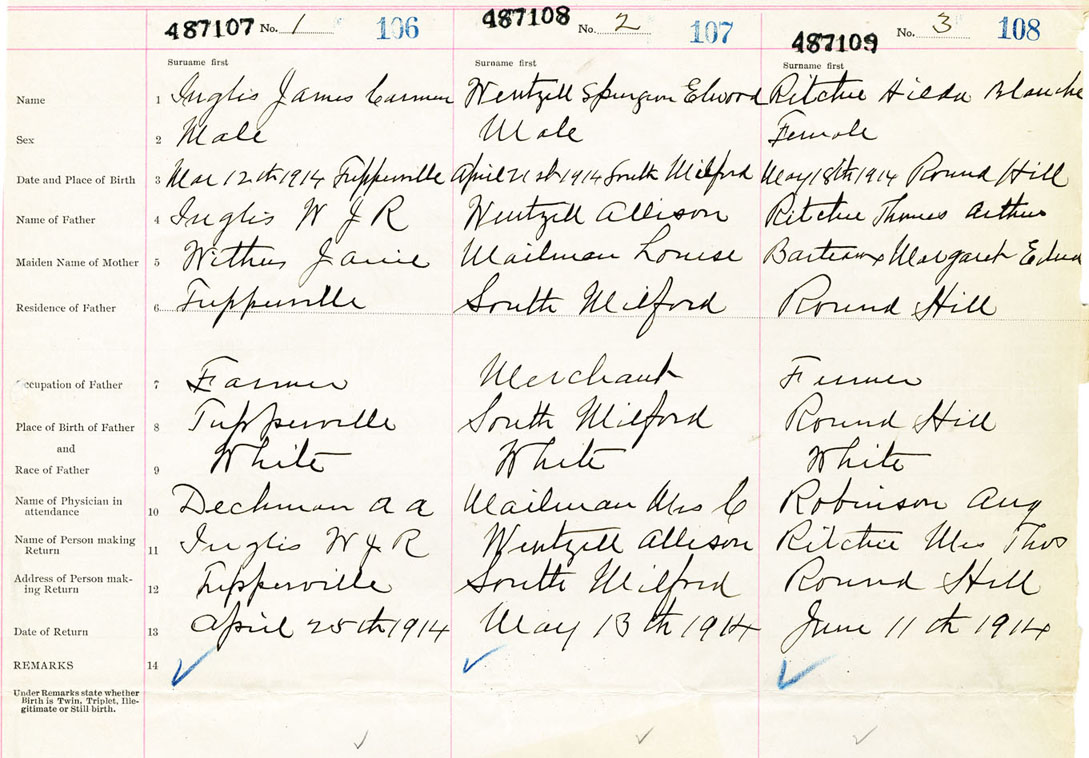 487107 No. 1 106 487108 No. 2 107 487109 No. 3 108
Surname first Surname first Surname first
Name 1 Inglis James Carmen Wentzell Spurgeon Elwood Ritchie Hilda Blanche
Sex 2 Male Male Female
Date and Place of Birth 3 Mar 12th 1914 Tupperville April 21st 1914 South Milford May 18th 1914 Round Hill
Name of Father 4 Inglis W J R Wentzell Allison Ritchie Thomas Arthur
Maiden Name of Mother 5 Withers Janie Mailman Louise Barteaux Margaret
Residence of Father 6 Tupperville South Milford Round Hill
Occupation of Father 7 Farmer Merchant Farmer
Place of Birth of Father 8 Tupperville South Milford Round Hill
and
Race of Father 9 White White White
Name of Physician in
attendance 10 Dechman a a Mailman Mrs C Robinson Aug
Name of Person making
Return 11 Inglis W J R Wentzell Allison Ritchie Mrs Thos
Address of Person mak-
ing Return 12 Tupperville South Milford Round Hill
Date of Return 13 April 25th 1914 May 13th 1914 June 11th 1914
REMARKS 14
Under Remarks state whether
Birth is Twin, Triplet, Ille-
gitimate or Still birth.